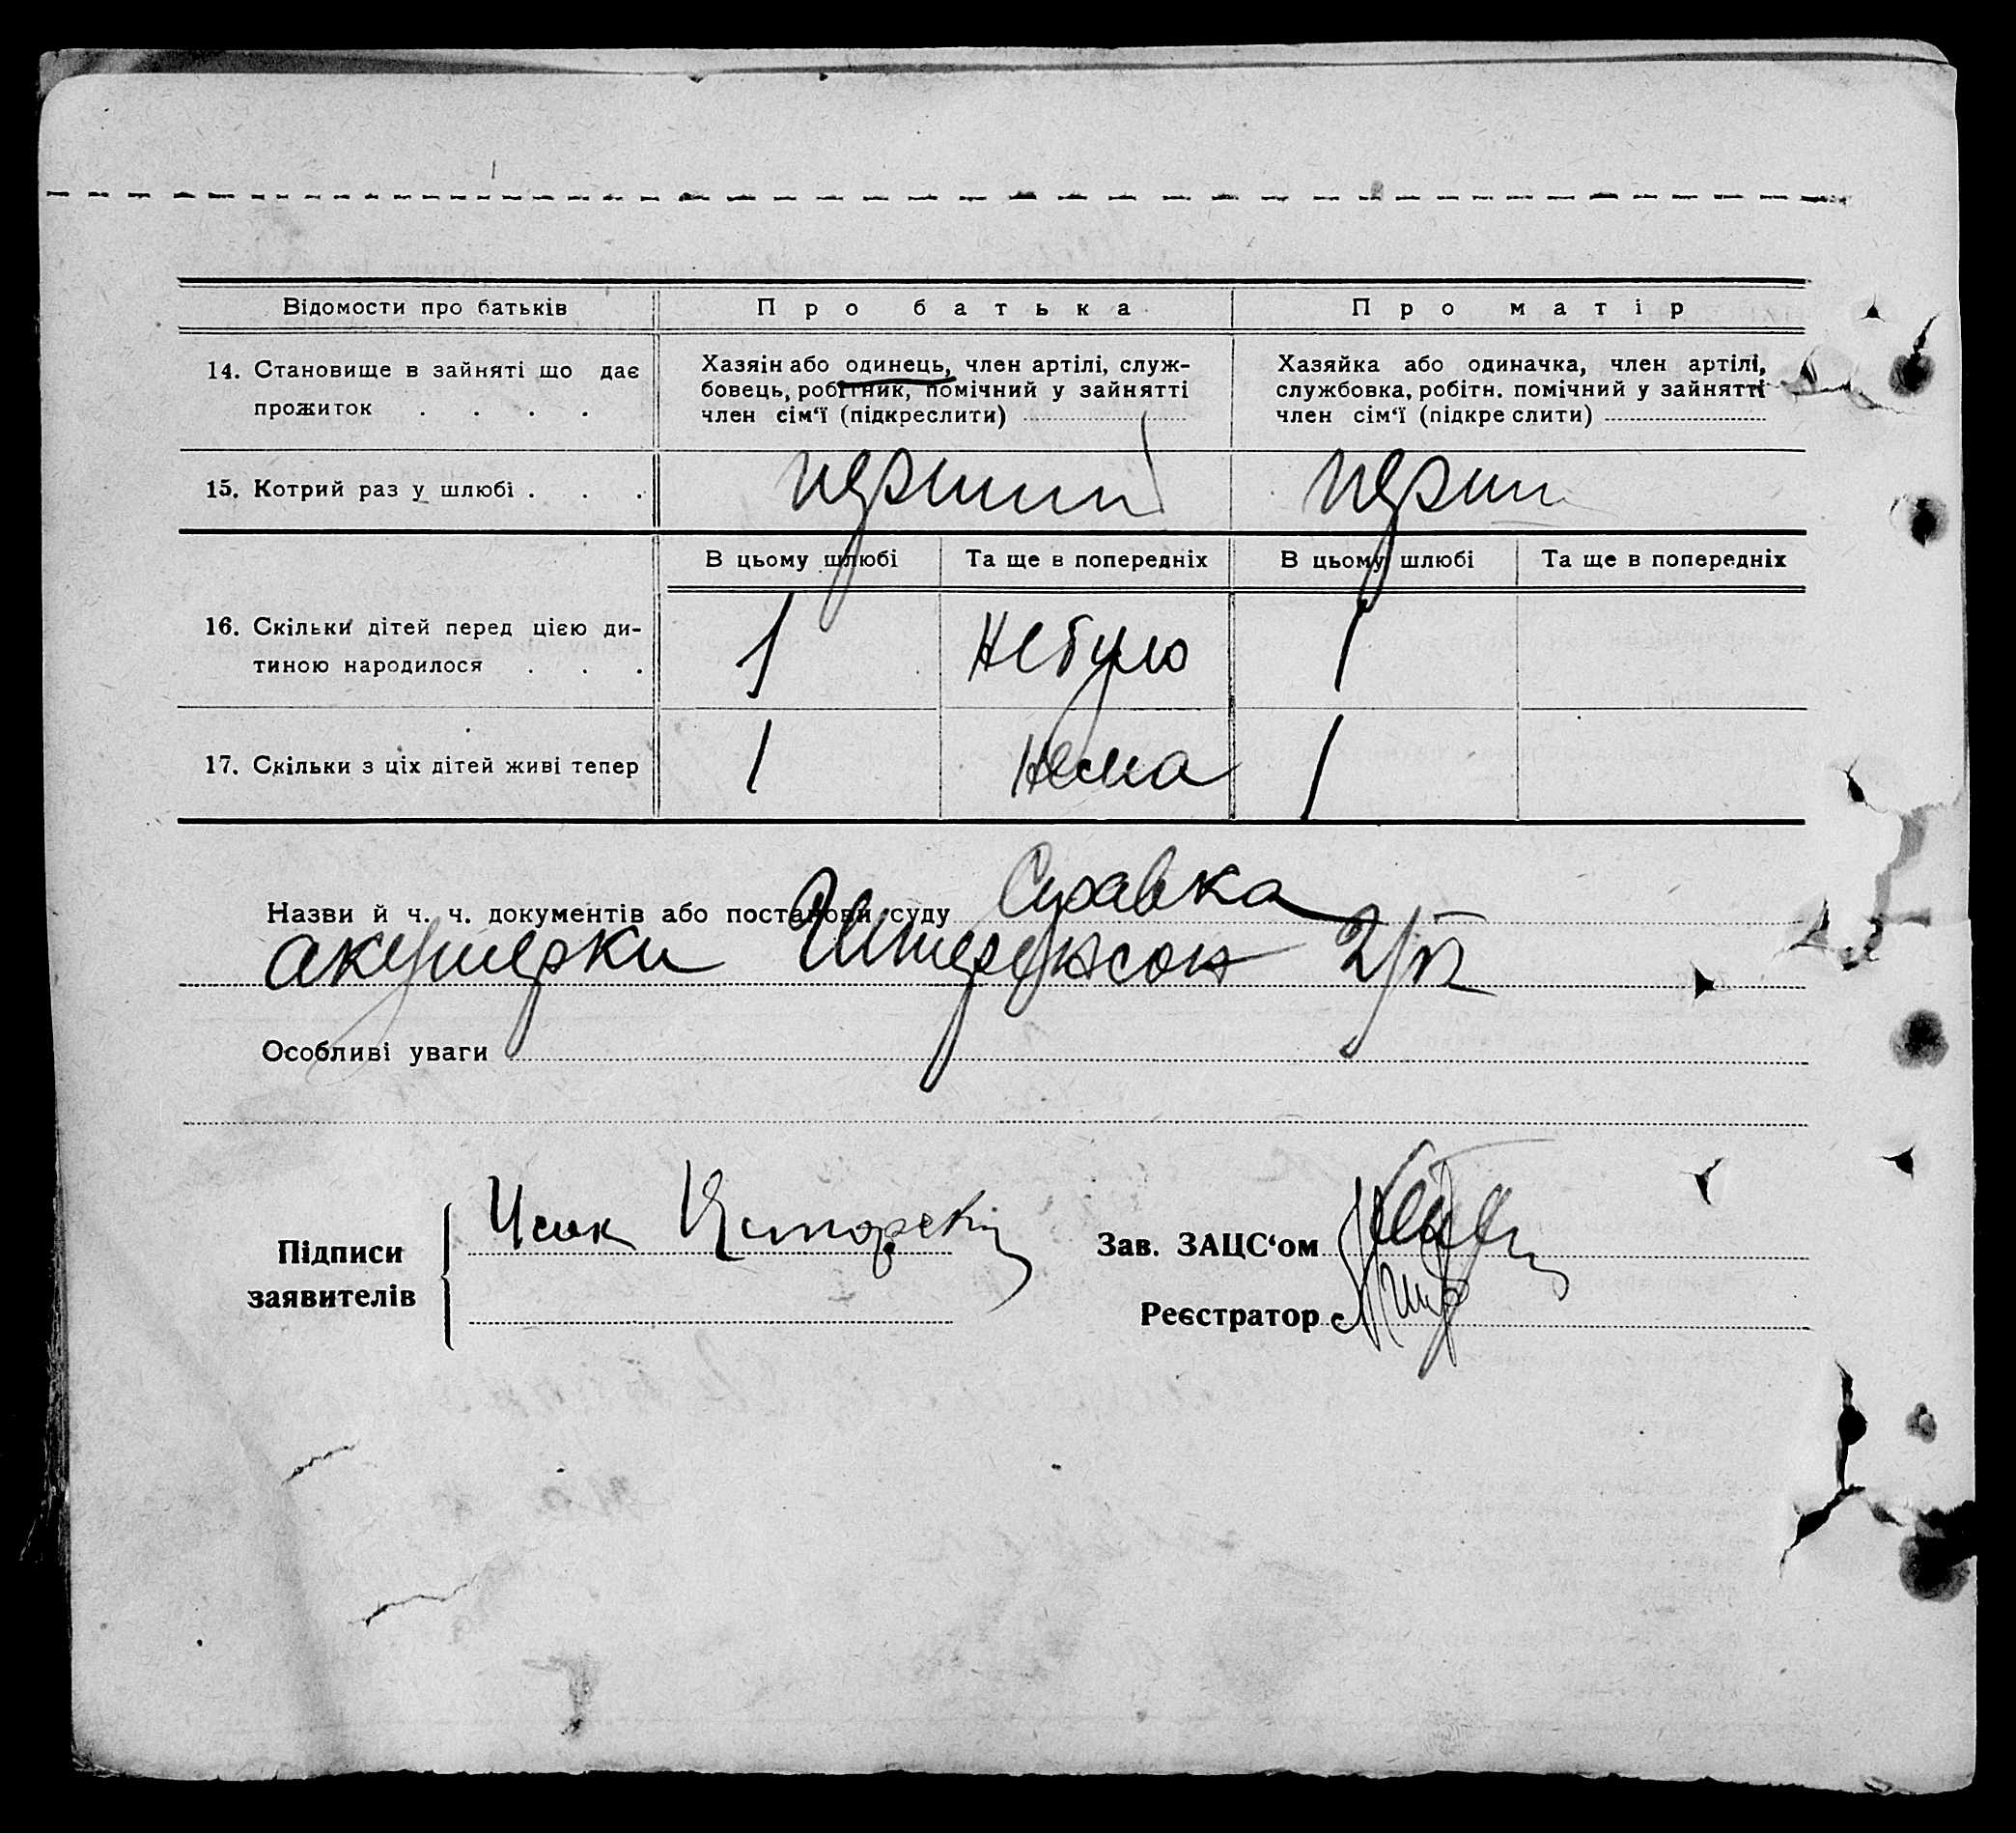 Відомости про батьків
Про батька
Про матір
14. Становище в зайняті що дає
прожиток . . . .
Хазяін або одинець, член артілі, служ-
бовець, робітник, помічний у зайнятті
член сім‘ї (підкреслити)
Хазяйка або одиначка, член артілі,
службовка, робітн. помічний у зайнятті
член сім‘ї (підкре слити)
15. Котрий раз у шлюбі . . .
перший
перши
В цьому шлюбі
Та ще в попередніх
В цьому шлюбі
Та ще в попередніх
16. Скільки дітей перед цією ди-
тиною народилося . . .
1
Небуло
1
17. Скільки з ціх дітей живі тепер
1
Нема
1
Назви й ч. ч. документів або постанови суду Справка
акушерки
Особливі уваги
Підписи
заявителів
Зав. ЗАЦС‘ом
Реєстратор